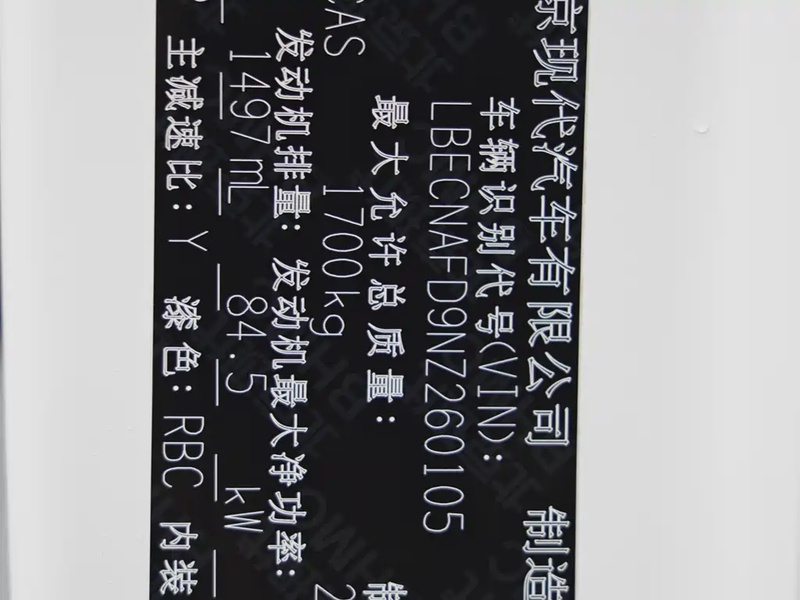 京现代汽车有限公司 制造
车辆识别代号(VIN):
LBECNAFD9NZ260105
最大允许总质量: 制
1700kg 2
CAS
发动机排量: 发动机最大净功率:
1497mL 84.5 kW
主减速比: Y 漆色: RBC 内装